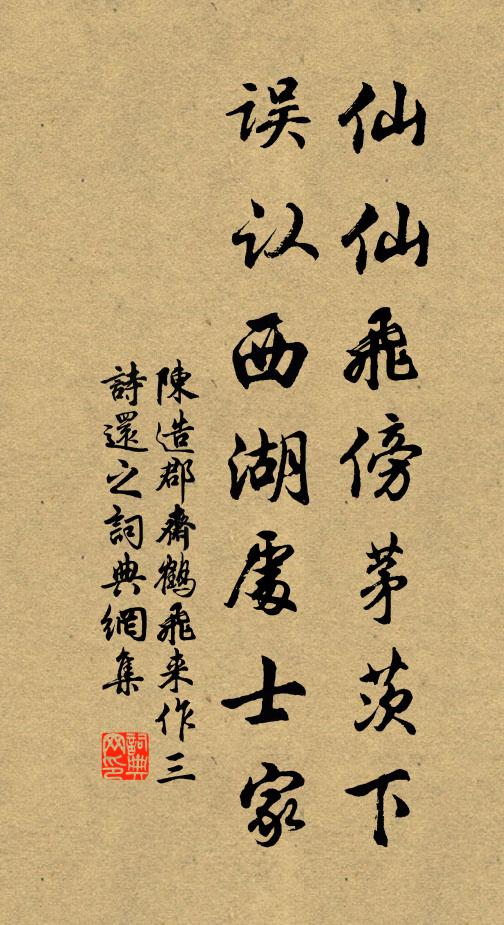 仙仙飛傍茅茨下
误认西湖處士家
陳造郡齋鶴飛来作三
詩還之詞典網集
詞典网印